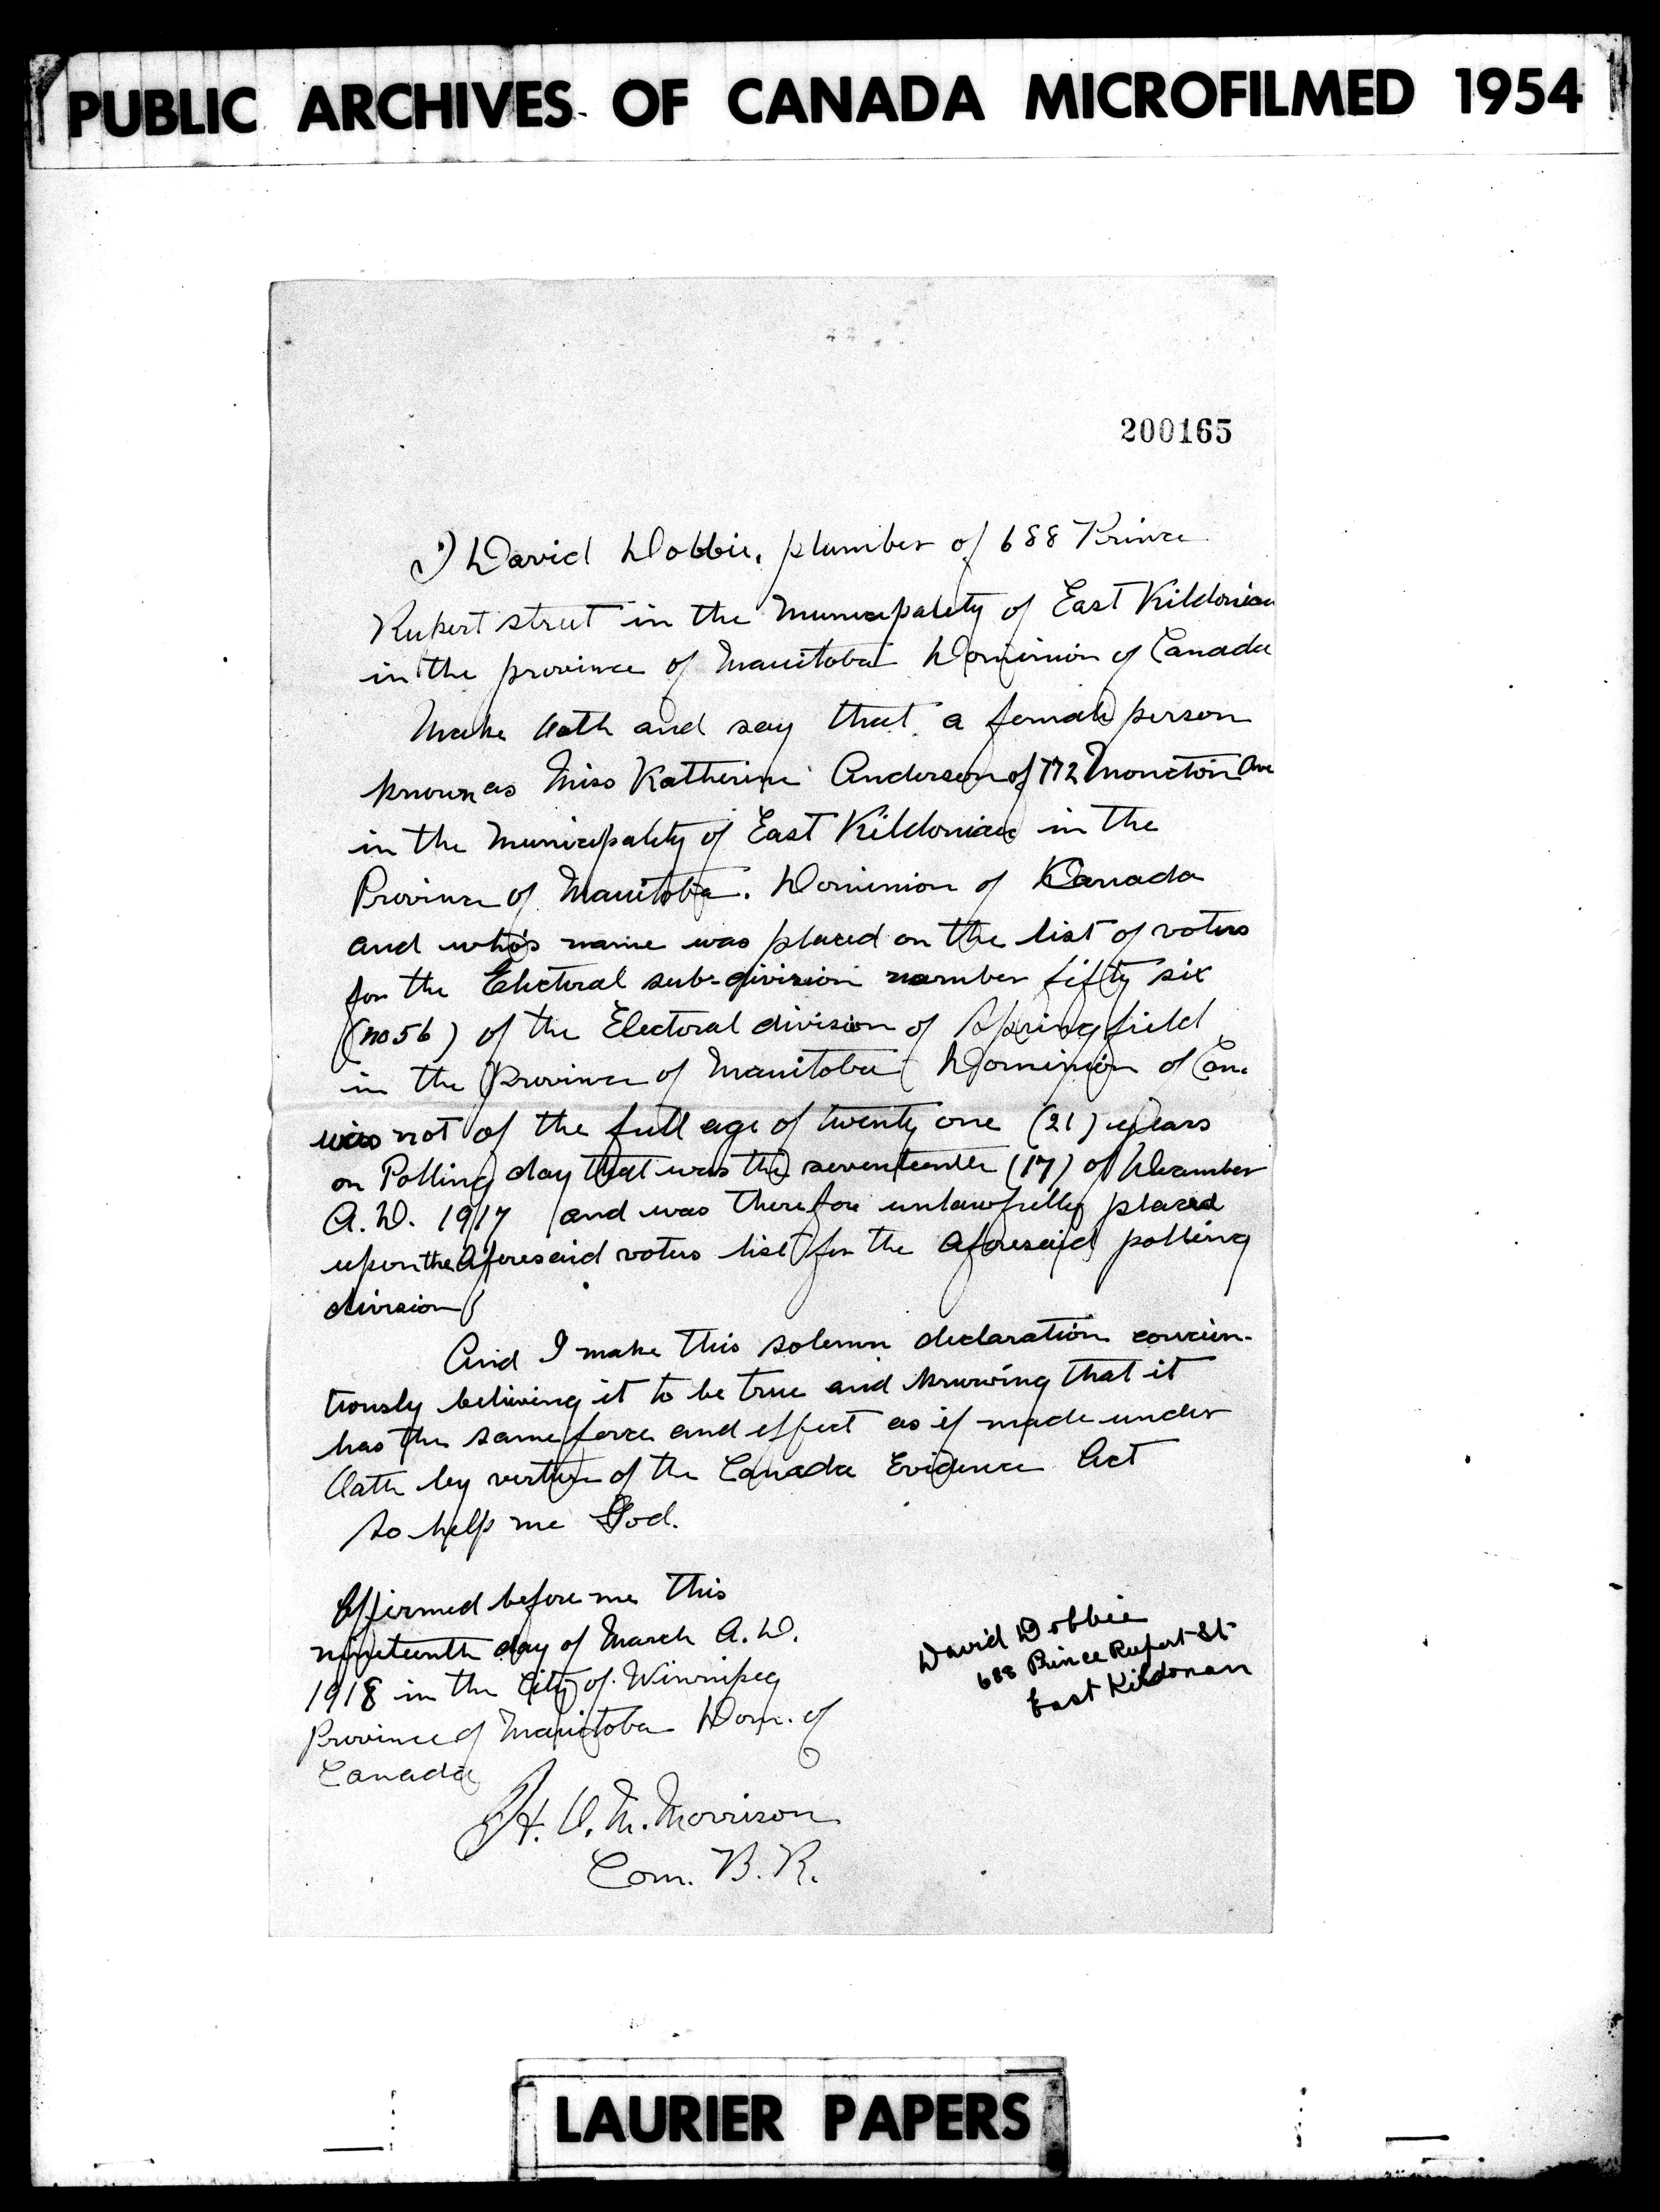 PUBLIC ARCHIVES OF CANADA MICROFILMED 1954
200165
I David Dobbie, plumber of 688 Prince
Rupert street in the Municipality of East Kildonian
in the province of Manitoba Dominion of Canada
Make Oath and say that a female person
known as Miss Katherine Anderson of 772 Moncton Ave
in the Municipality of East Kildonian in the
Province of Manitoba. Dominion of Canada
and who's name was placed on the list of voters
for the Electoral sub-division number fifty six
(no 56) of the Electoral division of Springfield
in the Province of Manitoba Dominion of Can.
was not of the full age of twenty one (21) years
on Polling day that was the seventeenth (17) of December
A.D. 1917 and was therefore unlawfully placed
upon the Aforesaid voters list for the Aforesaid polling
division
And I make this solemn declaration concien-
tiously beliving it to be true and knowing that it
has the same force and effect as if made under
Oath by vertue of the Canada Evidence Act
So help me God.
Affirmed before me this
nineteenth day of March A.D.
1918 in the City of Winnipeg
Province of Manitoba Dom. of
Canada
David Dobbie
688 Prince Rupert St
East Kildonan
H. V. M. Morrison
Com. B. R.
LAURIER PAPERS